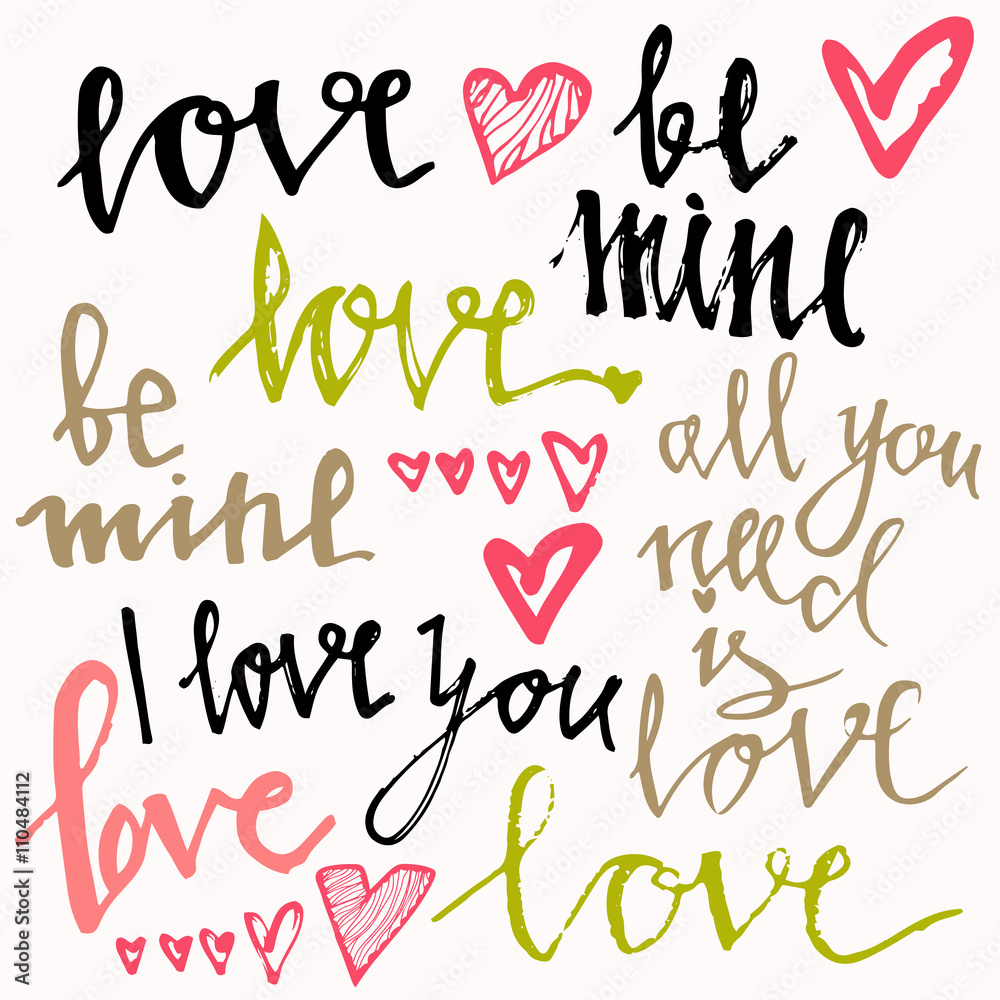 love
be
mine
love
be
mine
all you
need
is
love
I love you
love
love
Adobe Stock | #110484112